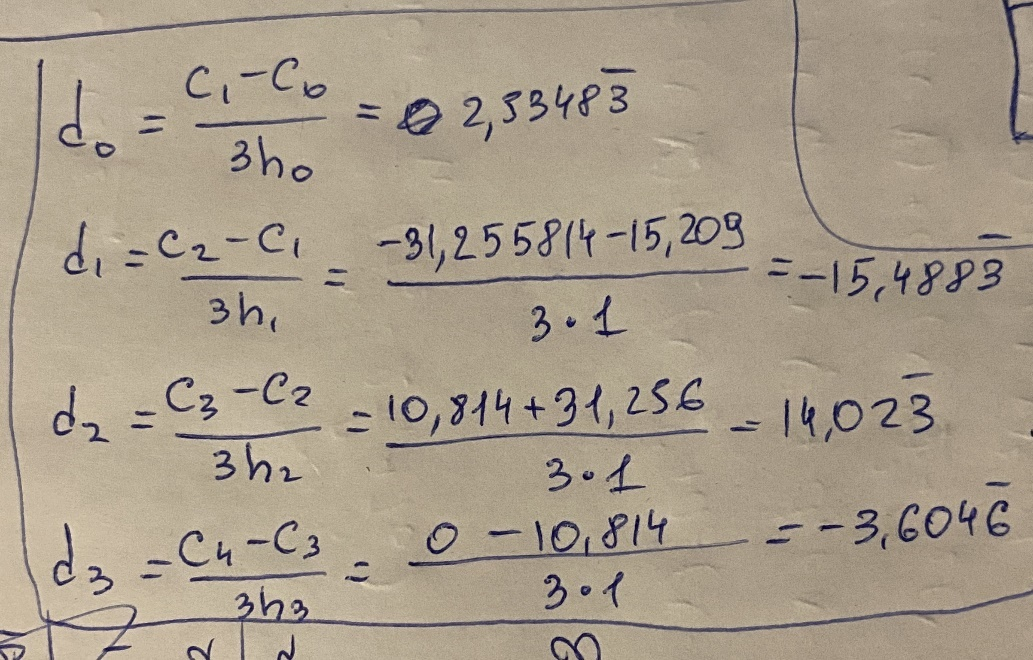 d₀ = (c₁ - c₀)/(3h₀) = 2,5348\overline{3}
d₁ = (c₂ - c₁)/(3h₁) = (-31,255814 - 15,209)/(3·1) = -15,488\overline{3}
d₂ = (c₃ - c₂)/(3h₂) = (10,814 + 31,256)/(3·1) = 14,02\overline{3}
d₃ = (c₄ - c₃)/(3h₃) = (0 - 10,814)/(3·1) = -3,604\overline{6}